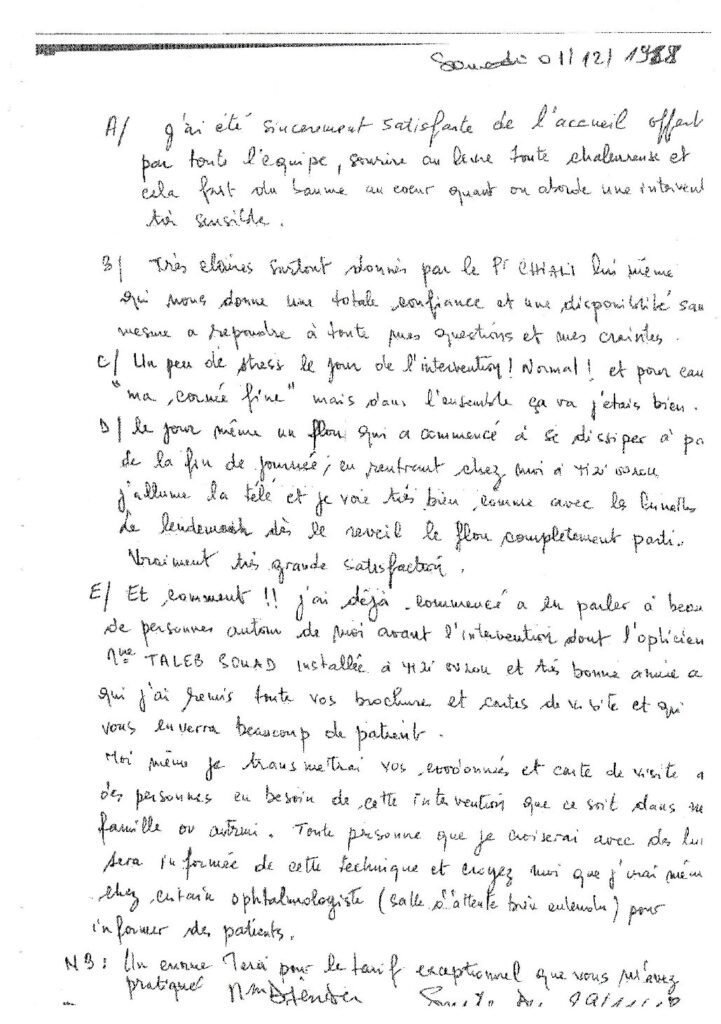 Samedi 01/12/1988
A/ j'ai été sincerement satisfaite de l'accueil offert
par toute l'équipe, sourire au levre toute chaleureuse et
cela fait du baume au coeur quant on aborde une intervent
très sensible.
B/ Très claires surtout donnés par le Pr CHIALI lui même
qui nous donne une totale confiance et une disponibilité san
mesme a repondre à toute mes questions et mes craintes.
C/ Un peu de stress le jour de l'intervention! Normal! et pour cau
"ma cornée fine" mais dans l'ensemble ça va j'étais bien.
D/ le jour même un flou qui a commencé à se dissiper à pa
de la fin de journée; en rentrant chez moi à TIZI OUZOU
j'allume la télé et je voie très bien comme avec les lunettes
Le lendemain dès le reveil le flou complètement parti.
Vraiment très grande satisfaction.
E/ Et comment!! j'ai déjà commencé a en parler à beau
de personnes autour de moi avant l'intervention dont l'opticien
Mme TALEB SOUAD Installée à TIZI OUZOU et très bonne amie a
qui j'ai remis toute vos brochures et cartes de visite et qui
vous enverra beaucoup de patient.
Moi même je transmetrai vos coordonnées et carte de visite a
des personnes en besoin de cette intervention que ce soit dans m
famille ou autrui. Toute personne que je croiserai avec des lu
sera informée de cette technique et croyez moi que j'irai mêm
chez certain ophtalmologiste (salle d'attente bien entendu) pour
informer des patients.
NB: Un enorme Merci pour le tarif exceptionnel que vous m'avez
pratiqué Mme